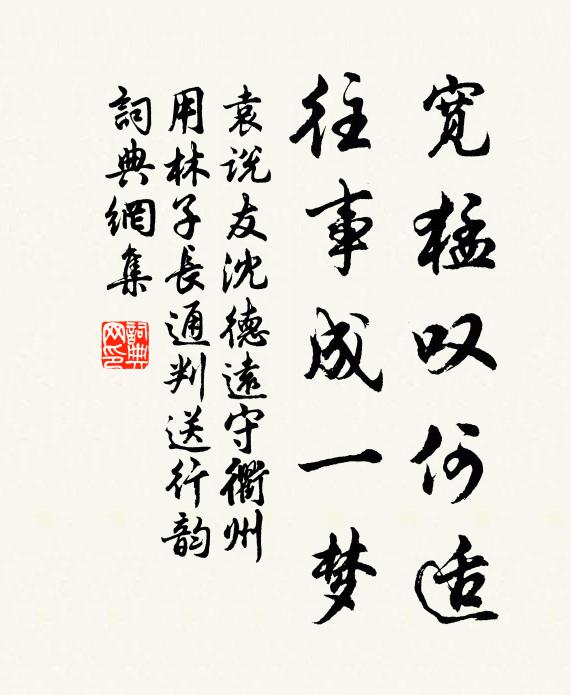 宽猛叹何适
往事成一梦
袁说友沈德远守衢州
用林子长通判送行韵
詞典網集
詞典网印